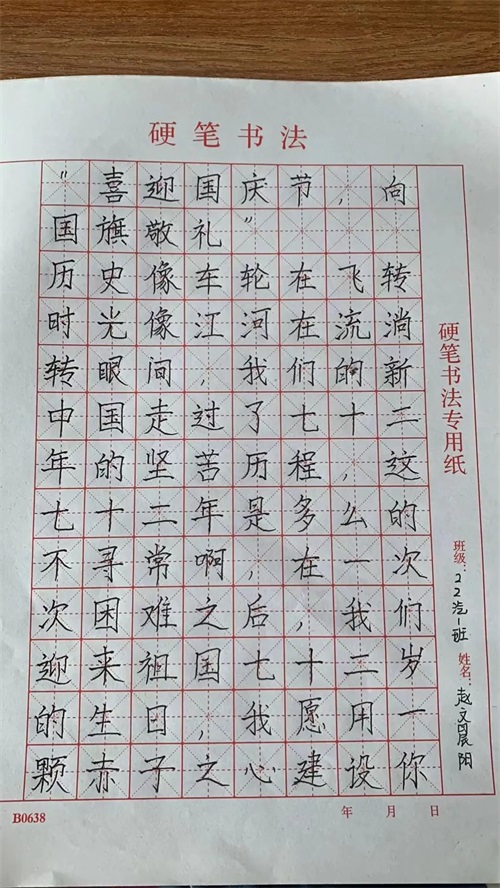 硬笔书法
“喜迎国庆节，向
国旗敬礼”
历史像车轮在飞转
时光像江河在流淌
转眼间，我们的新
中国走过了七十二
年的坚苦历程，这
七十二年是多么的
不寻常啊，在一次
次困难之后，我们
迎来祖国七十二岁
的生日，我愿用一
颗赤子之心建设你
硬笔书法专用纸
班级：22汽一班 姓名：赵文阳
B0638 年 月 日